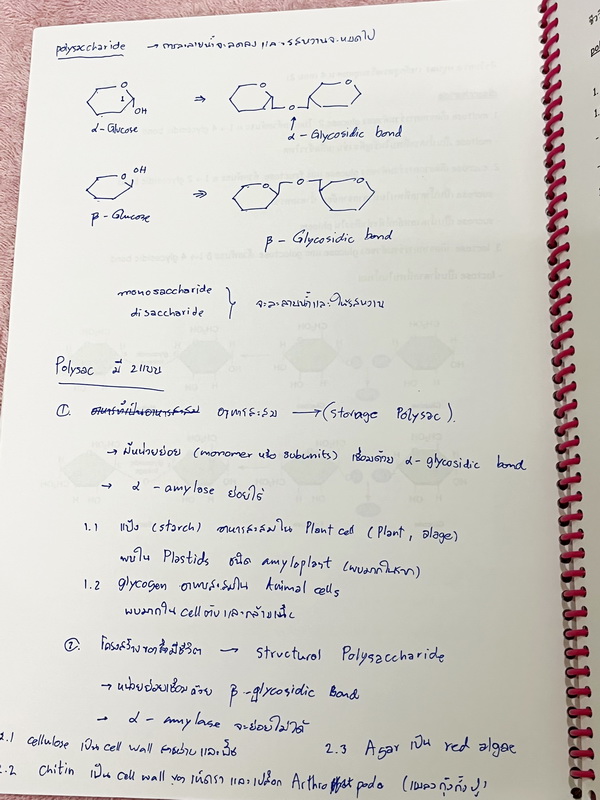 polysaccharide → การละลายน้ำจะลดลง และ รสหวานจะหมดไป
O
1
OH
α-Glucose
⇒
O
O
O
α - Glycosidic bond
O
OH
β - Glucose
⇒
O
O
O
β - Glycosidic bond
monosaccharide
disaccharide } จะละลายน้ำและให้รสหวาน
Polysac มี 2 แบบ
①. อาหารสะสม → (storage Polysac).
→ มีหน่วยย่อย (monomer หรือ subunits) เชื่อมด้วย α-glycosidic bond
→ α - amylase ย่อยได้
1.1 แป้ง (starch) อาหารสะสมใน Plant cell (Plant, alage)
พบใน Plastids ชนิด amyloplast (พบมากในราก)
1.2 glycogen อาหารสะสมใน Animal cells
พบมากใน cell ตับ และกล้ามเนื้อ
②. โครงสร้างของสิ่งมีชีวิต → structural Polysaccharide
→ หน่วยย่อยเชื่อมด้วย β-glycosidic Bond
→ α - amylase จะย่อยไม่ได้
2.1 cellulose เป็น cell wall สาหร่าย และพืช 2.3 Agar เป็น red algae
2.2 Chitin เป็น cell wall ของเห็ดรา และเปลือก Arthropoda (แมลง กุ้ง กั้ง ปู)